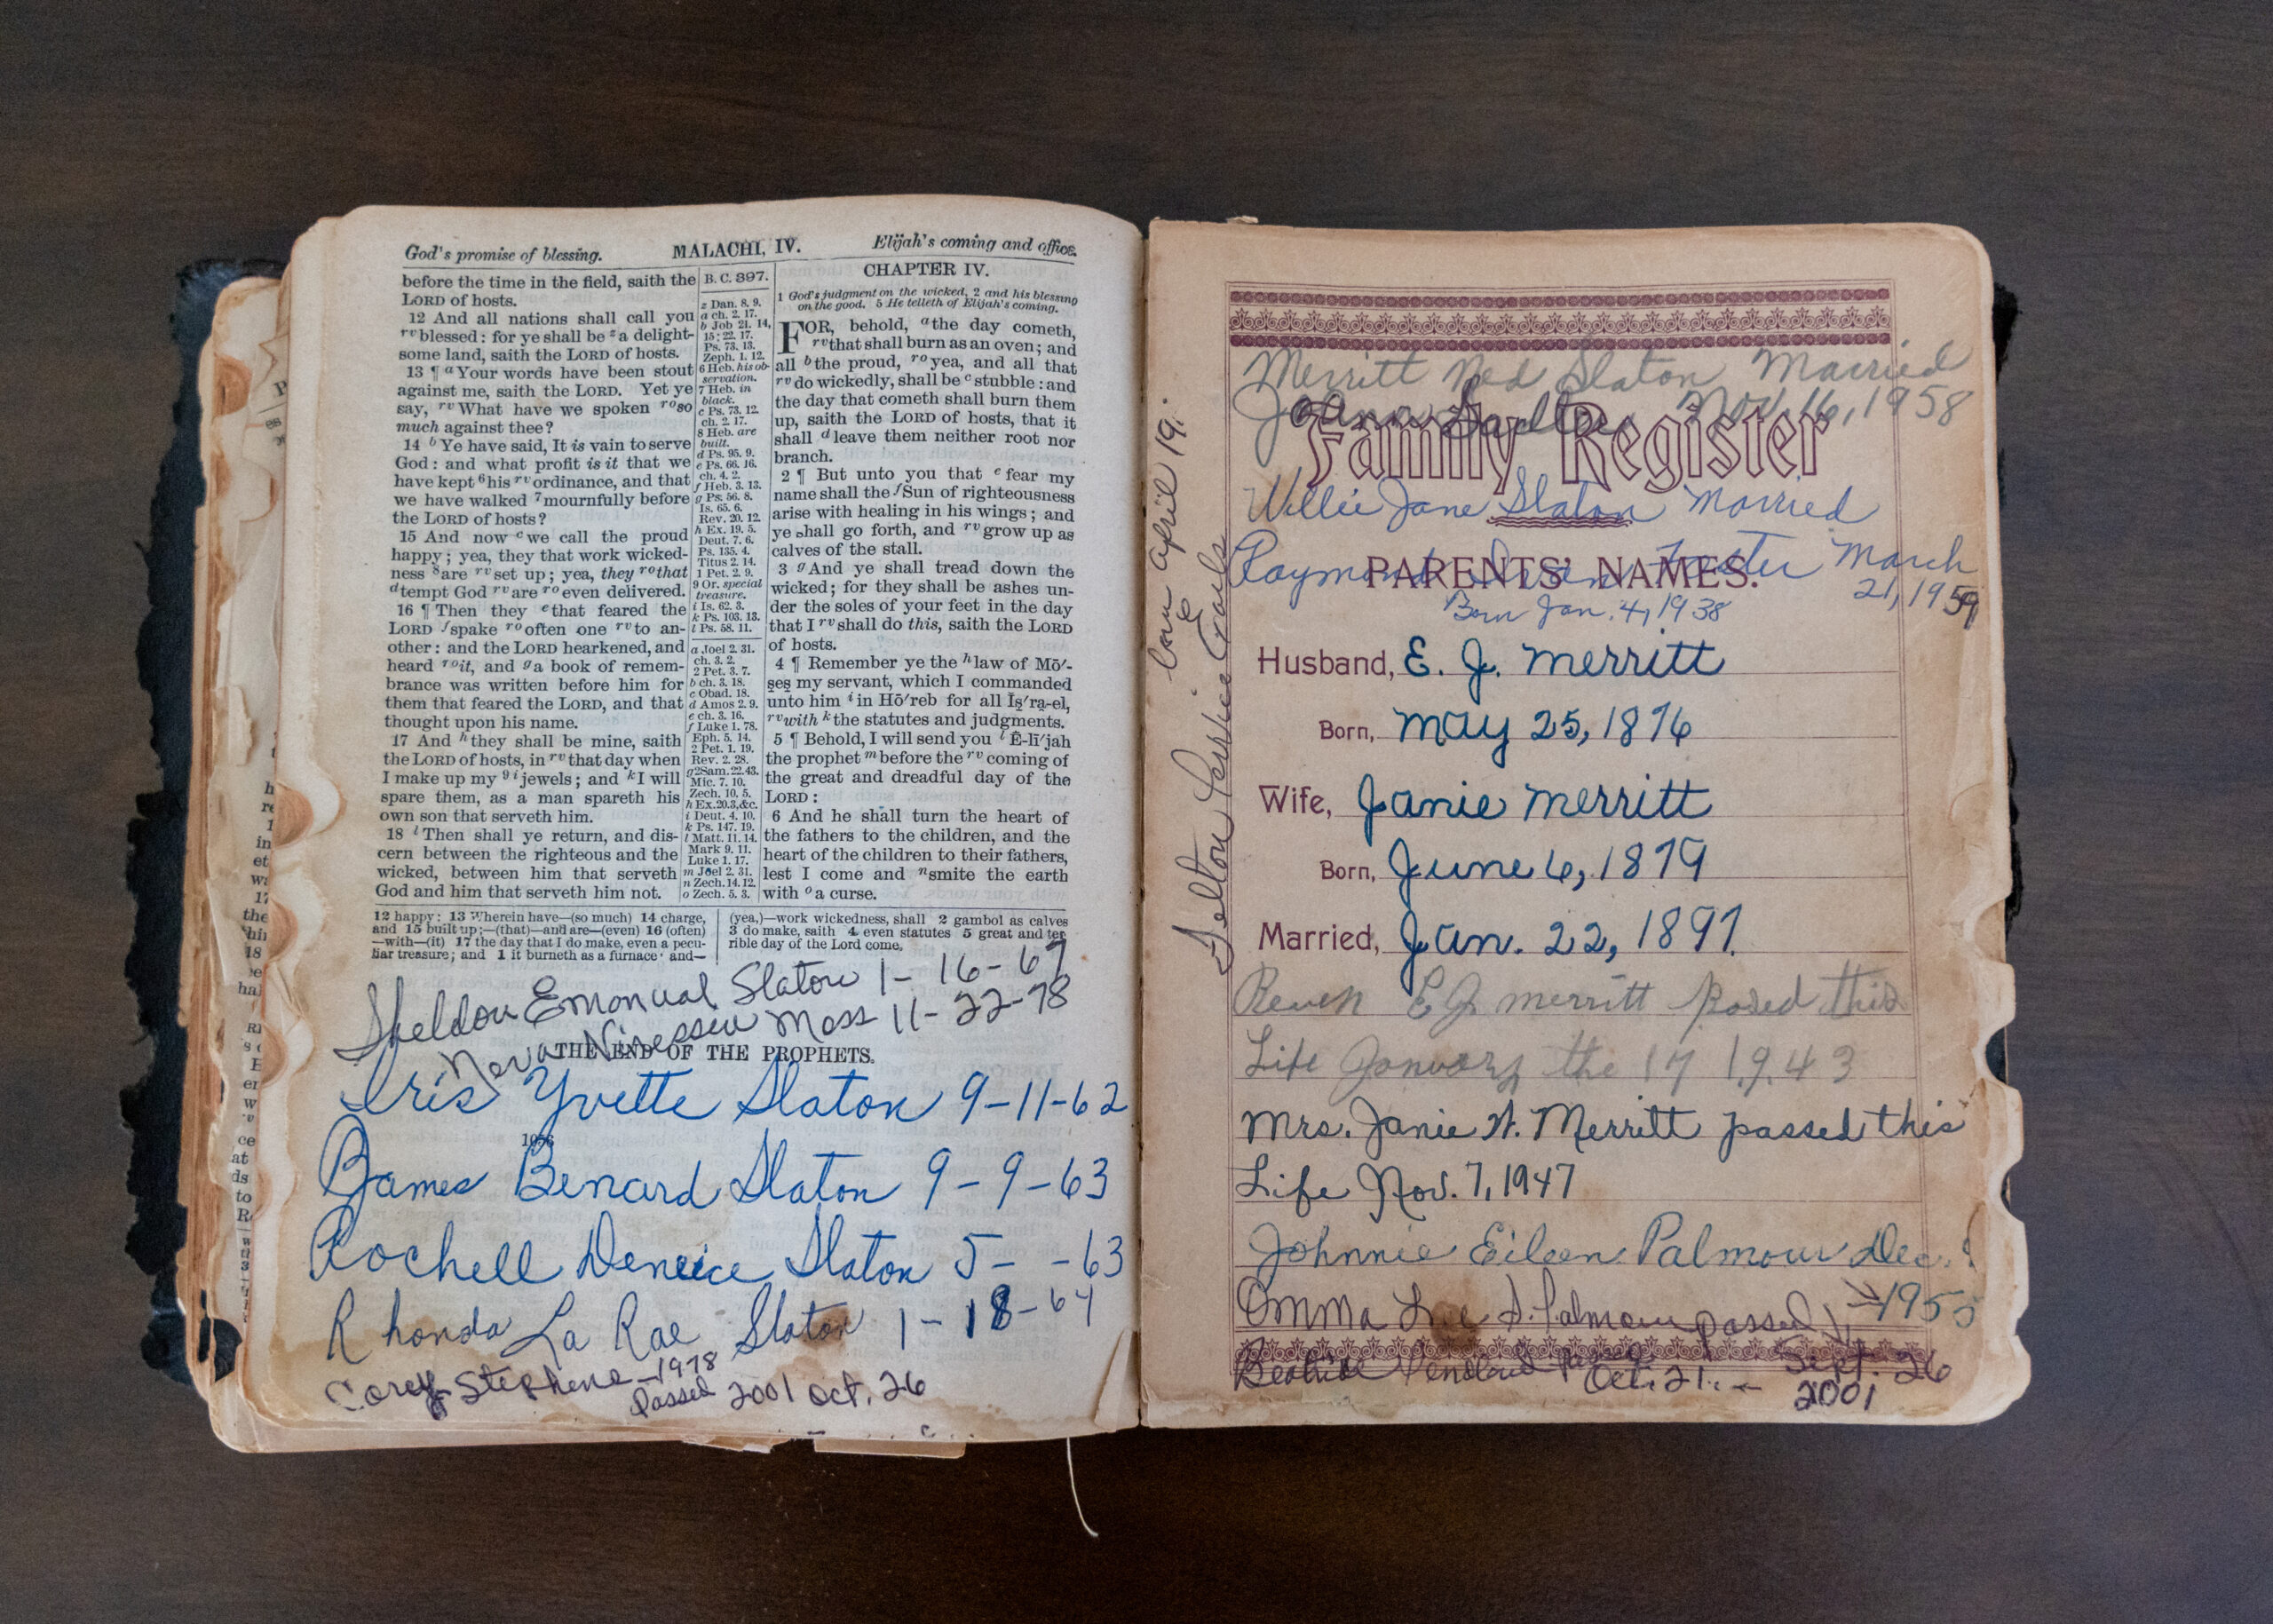 God's promise of blessing. MALACHI, IV. Elijah's coming and office.
before the time in the field, saith the
LORD of hosts.
12 And all nations shall call you
rv blessed: for ye shall be z a delight-
some land, saith the LORD of hosts.
13 ¶ a Your words have been stout
against me, saith the LORD. Yet ye
say, rv What have we spoken ro so
much against thee?
14 b Ye have said, It is vain to serve
God: and what profit is it that we
have kept 6 his rv ordinance, and that
we have walked 7 mournfully before
the LORD of hosts?
15 And now c we call the proud
happy; yea, they that work wicked-
ness 8 are rv set up; yea, they ro that
d tempt God rv are ro even delivered.
16 ¶ Then they e that feared the
LORD f spake ro often one rv to an-
other: and the LORD hearkened, and
heard ro it, and g a book of remem-
brance was written before him for
them that feared the LORD, and that
thought upon his name.
17 And h they shall be mine, saith
the LORD of hosts, in rv that day when
I make up my 9 i jewels; and k I will
spare them, as a man spareth his
own son that serveth him.
18 l Then shall ye return, and dis-
cern between the righteous and the
wicked, between him that serveth
God and him that serveth him not.
B. C. 397.
z Dan. 8. 9.
a ch. 2. 17.
b Job 21. 14,
15; 22. 17.
Ps. 73. 13.
Zeph. 1. 12.
6 Heb. his ob-
servation.
7 Heb. in
black.
c Ps. 73. 12.
ch. 2. 17.
8 Heb. are
built.
d Ps. 95. 9.
e Ps. 66. 16.
ch. 4. 2.
f Heb. 3. 13.
g Ps. 56. 8.
Is. 65. 6.
Rev. 20. 12.
h Ex. 19. 5.
Deut. 7. 6.
Ps. 135. 4.
Titus 2. 14.
1 Pet. 2. 9.
9 Or, special
treasure.
i Is. 62. 3.
k Ps. 103. 13.
l Ps. 58. 11.
a Joel 2. 31.
ch. 3. 2.
2 Pet. 3. 7.
b ch. 3. 18.
c Obad. 18.
d Amos 2. 9.
e ch. 3. 16.
f Luke 1. 78.
Eph. 5. 14.
2 Pet. 1. 19.
Rev. 2. 28.
g 2Sam. 22. 43.
Mic. 7. 10.
Zech. 10. 5.
h Ex. 20. 3, &c.
i Deut. 4. 10.
k Ps. 147. 19.
l Matt. 11. 14.
Mark 9. 11.
Luke 1. 17.
m Joel 2. 31.
n Zech. 14. 12.
o Zech. 5. 3.
CHAPTER IV.
1 God's judgment on the wicked, 2 and his blessing
on the good. 5 He telleth of Elijah's coming.
FOR, behold, a the day cometh,
rv that shall burn as an oven; and
all b the proud, ro yea, and all that
rv do wickedly, shall be c stubble: and
the day that cometh shall burn them
up, saith the LORD of hosts, that it
shall d leave them neither root nor
branch.
2 ¶ But unto you that e fear my
name shall the f Sun of righteousness
arise with healing in his wings; and
ye shall go forth, and rv grow up as
calves of the stall.
3 g And ye shall tread down the
wicked; for they shall be ashes un-
der the soles of your feet in the day
that I rv shall do this, saith the LORD
of hosts.
4 ¶ Remember ye the h law of Mō′-
ses my servant, which I commanded
unto him i in Hō′reb for all Is′ra-el,
rv with k the statutes and judgments.
5 ¶ Behold, I will send you l Ē-lī′jah
the prophet m before the rv coming of
the great and dreadful day of the
LORD:
6 And he shall turn the heart of
the fathers to the children, and the
heart of the children to their fathers,
lest I come and n smite the earth
with o a curse.
12 happy: 13 Wherein have—(so much) 14 charge,
and 15 built up;—(that)—and are—(even) 16 (often)
—with—(it) 17 the day that I do make, even a pecu-
liar treasure; and 1 it burneth as a furnace; and—
(yea,)—work wickedness, shall 2 gambol as calves
3 do make, saith 4 even statutes 5 great and ter
rible day of the Lord come.
Sheldon Emanual Slaton 1-16-67
Nova Moss 11-22-78
THE END OF THE PROPHETS.
Iris Yvette Slaton 9-11-62
1056
James Benard Slaton 9-9-63
Rochell Deneice Slaton 5- -63
Rhonda La Rae Slaton 1-18-64
Corey Stephens 1978
Passed 2001 Oct. 26
born April 19.
Felton
Merritt Ned Slaton Married
Joann Nov. 16, 1958
Family Register
Willie Jane Slaton Married
Raymond Foster March
21, 1959
PARENTS' NAMES.
Born Jan. 4, 1938
Husband, E. J. Merritt
Born, May 25, 1876
Wife, Janie Merritt
Born, June 6, 1879
Married, Jan. 22, 1897.
Reven E J merritt Pased this
Life January the 17 1943
Mrs. Janie W. Merritt passed this
Life Nov. 7, 1947
Johnnie Eileen Palmour Dec.
1955
Omma Palmour passed
Sept. 26
Oct. 21. 2001